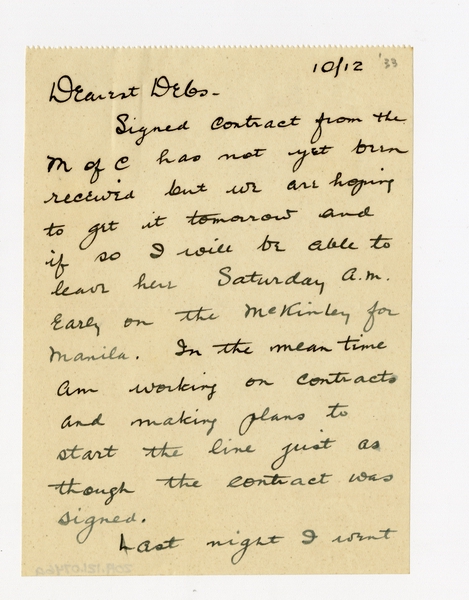 10/12 '33
Dearest Debs-
Signed contract from the
M of C has not yet been
received but we are hoping
to get it tomorrow and
if so I will be able to
leave here Saturday A.M.
Early on the McKinley for
Manila. In the mean time
am working on contracts
and making plans to
start the line just as
though the contract was
signed.
Last night I went